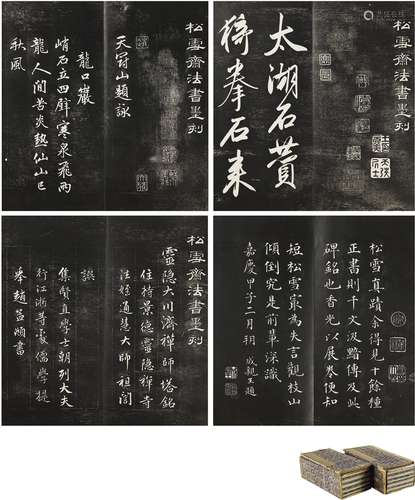 松雪齋法書墨刻
天冠山題詠
龍口巖
峭石立四壁寒泉飛兩
龍人間苦炎熱仙山已
秋風
松雪齋法書墨刻
太湖石贊
猗拳石來
松雪齋法書墨刻
靈隱大川濟禪師塔銘
住持景德靈隱禪寺
法姪通慧大師祖誾
譔
集賢直學士朝列大夫
行江浙等處儒學提
舉趙孟頫書
松雪真蹟余得見十餘種
正書則千文汲黯傳及此
碑銘也香光以展卷便知
短松雪最為失言觀枝山
傾倒究是前輩深識
嘉慶甲子二月朔 成親王題